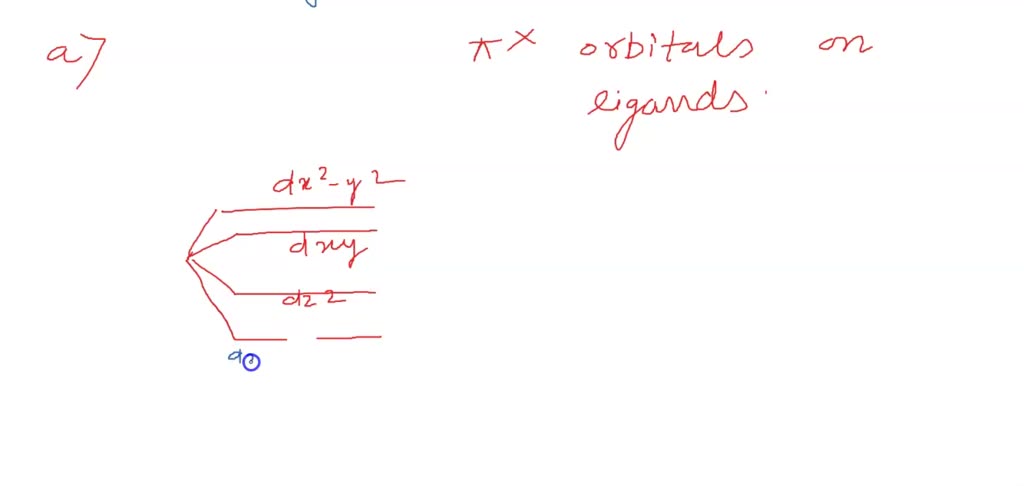 a) π* orbitals on
ligands.
dx²-y²
dxy
dz²